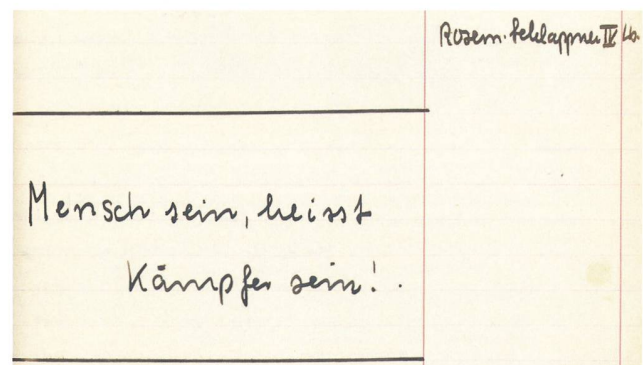 Rosem. Schlappner IV b.
Mensch sein, heisst
Kämpfer sein!.